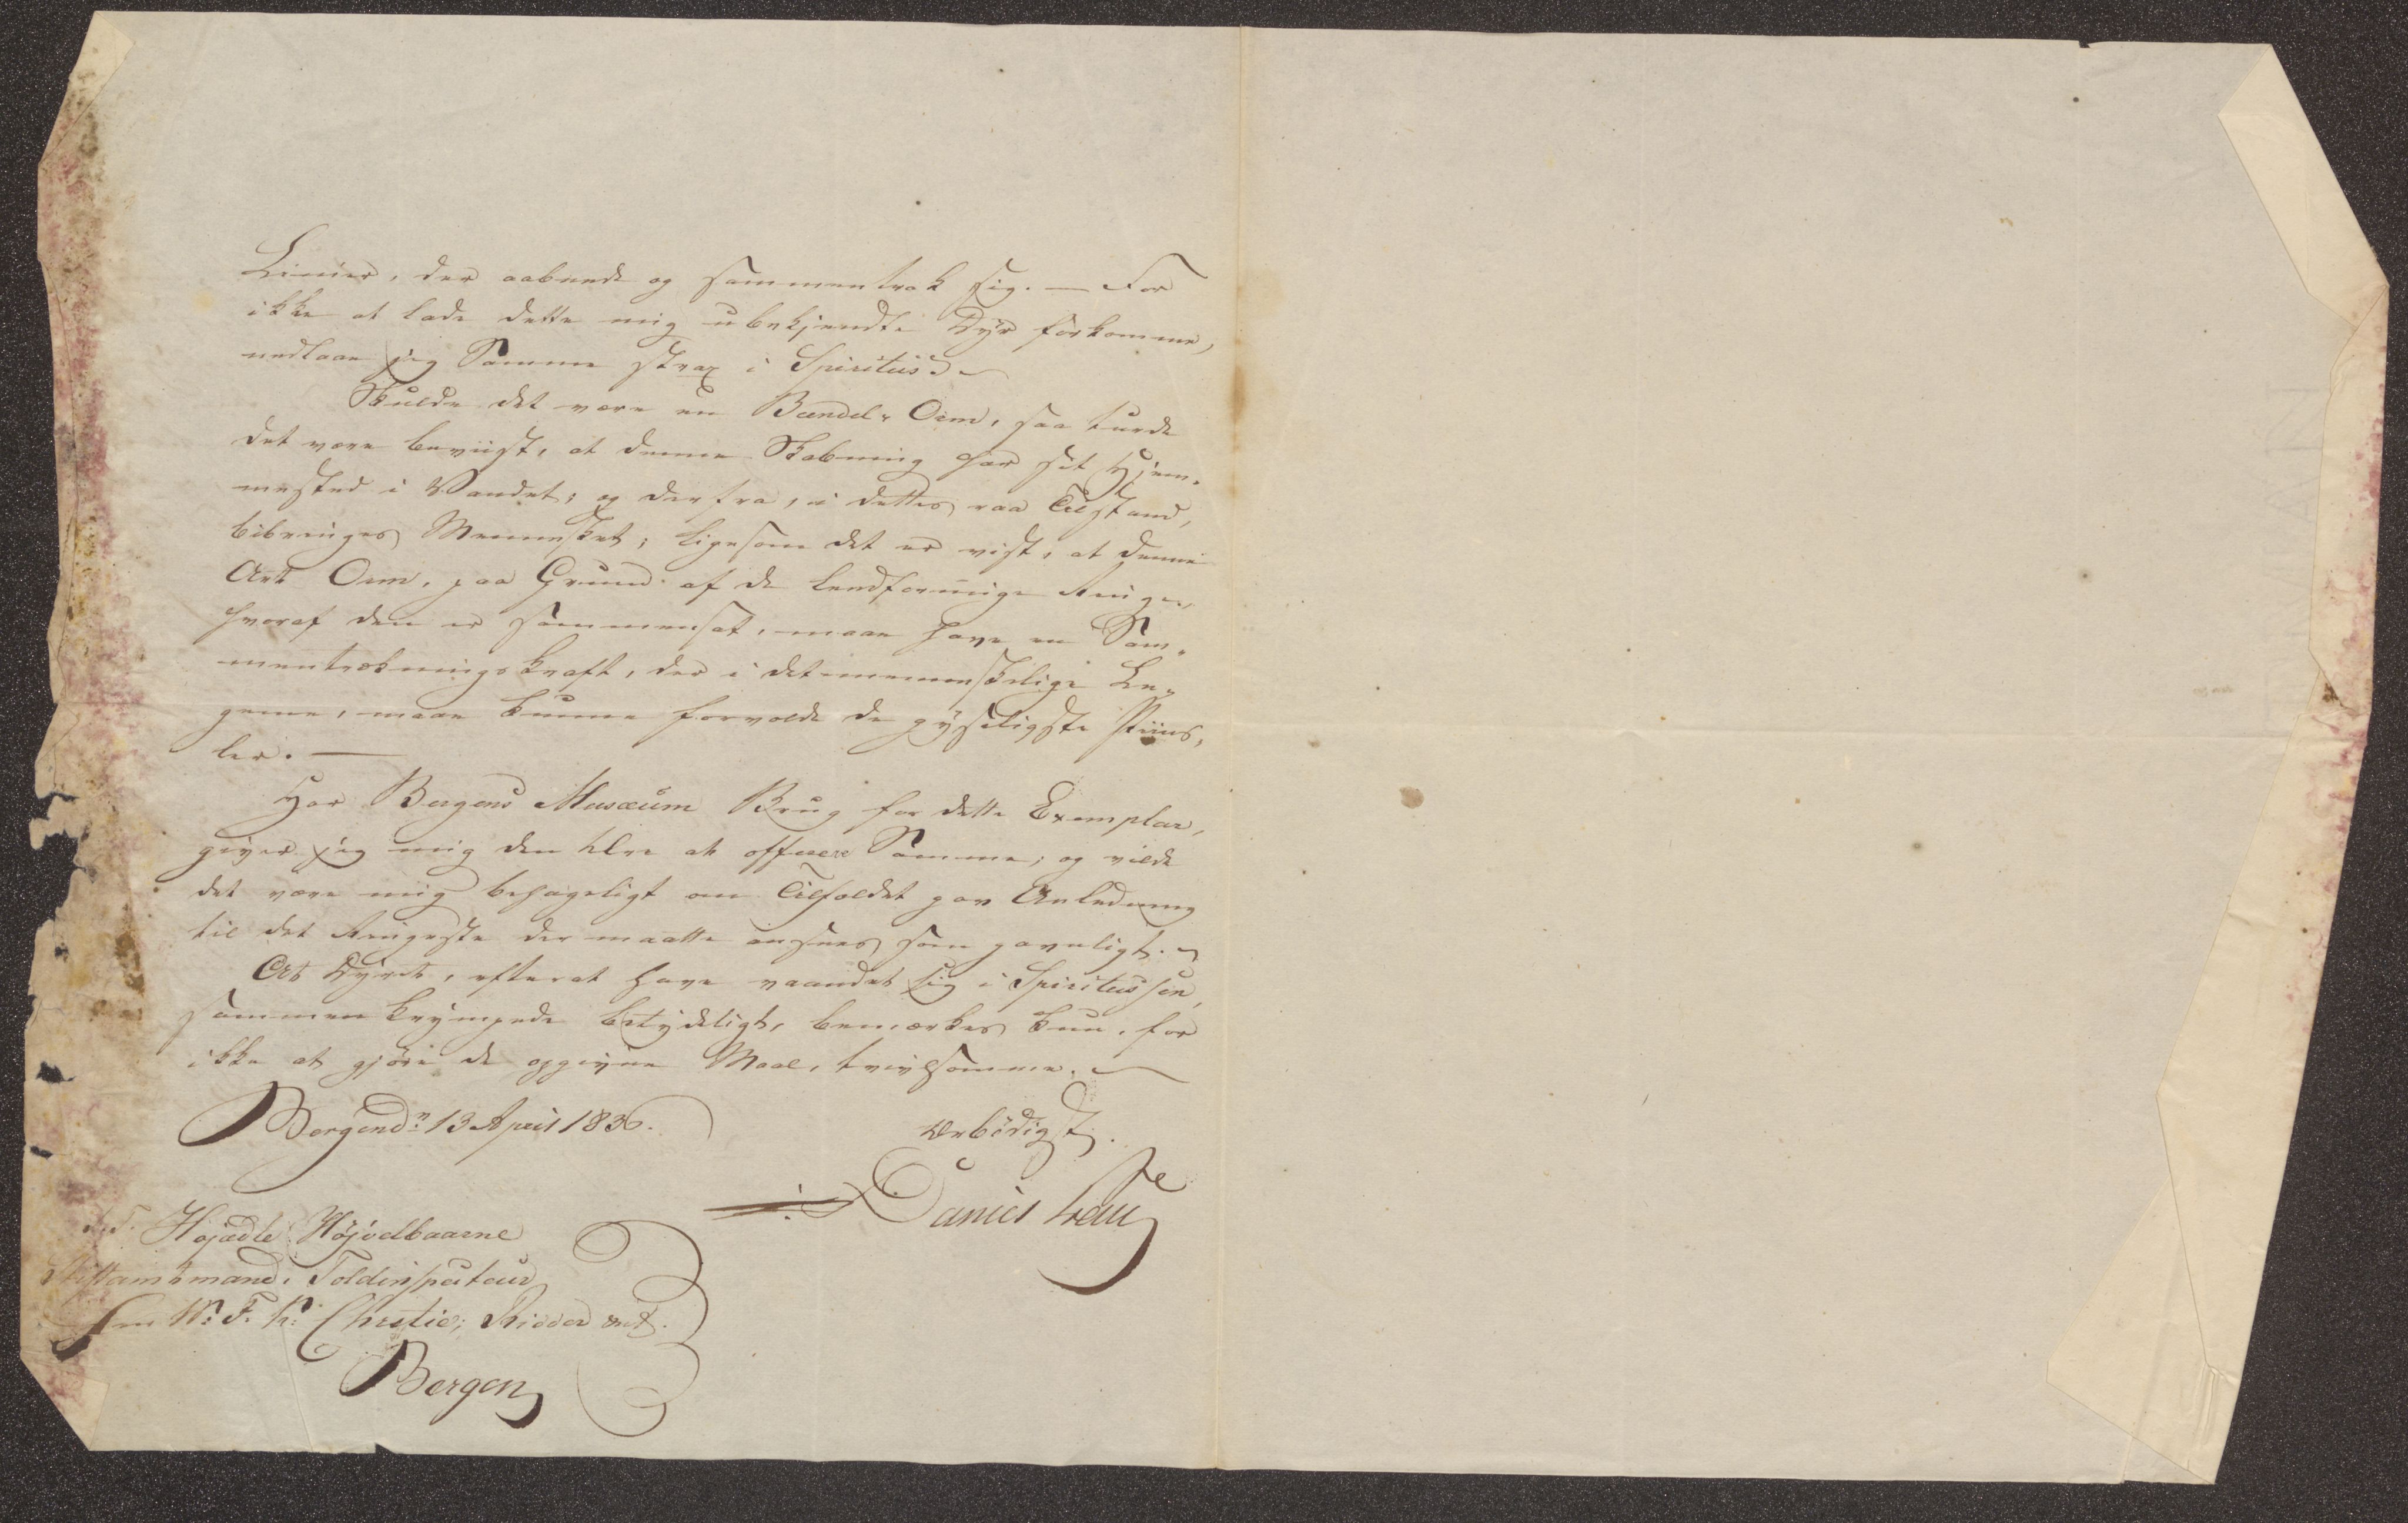 Linier, der aabnede og sammentrak sig. — For
ikke at lade dette mig ubekjendte Dyr forkomme,
nedlagde jeg Samme strax i Spiritus. —
Skulde det være en Bændel-Orm, saa turde
det være beviist, at denne Skabning har sit Hjem-
mested i Vandet; og derfra, i dettes raa Tilstand,
bibringes Mennesket; ligesom det er vist, at denne
Art Orm, paa Grund af de leedformige Ringe,
hvoraf den er sammensat, maae have en Sam-
mentrækningskraft, der i det menneskelige Le-
geme, maae kunne forvolde de gyseligste Piins-
ler. —
Har Bergens Musæum Brug for dette Exemplar,
giver jeg mig den Ære at offerere Samme; og vilde
det være mig behageligt om Tilfældet gav Anledning
til det Ringeste der maatte ansees som gavnligt. —
At Dyret, efter at have vaandet sig i Spiritussen,
sammenkrympede betydeligt, bemærkes kun, for
ikke at gjöre de opgivne Maal, tvivlsomme. —
Bergen dn 13 April 1836.
Ærbödigst.
Daniel
S. T. Höjædle Höjvelbaarne
Stiftamtmand, Toldinspecteur
Herr W. F. K. Christie; Ridder etc.
Bergen